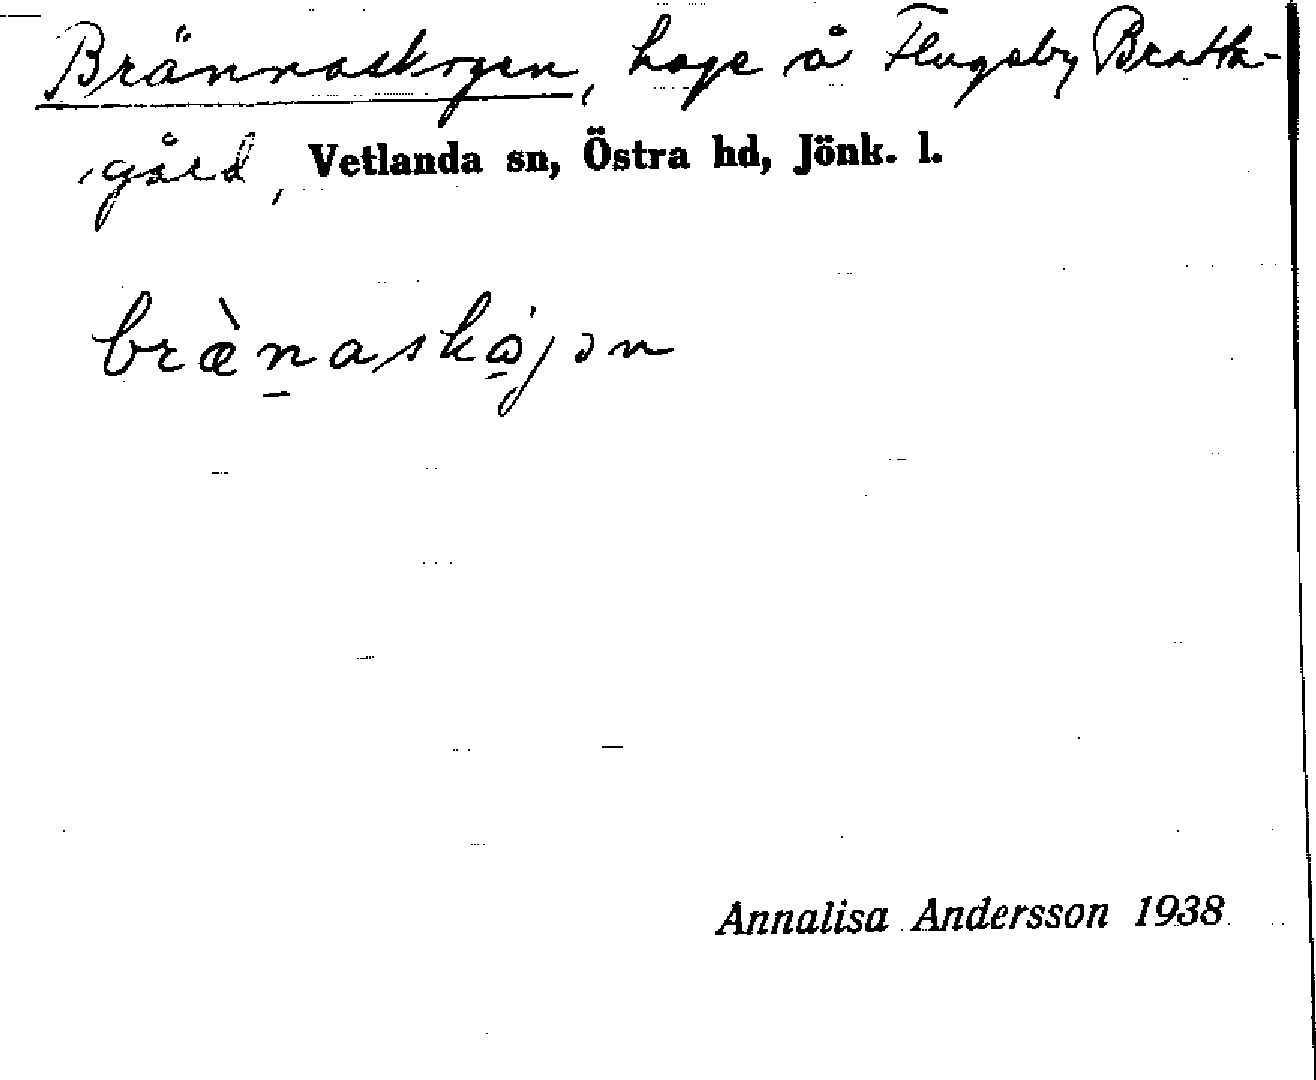 Brännaskogen, hage å Flugeby Bratta-
gård, Vetlanda sn, Östra hd, Jönk. l.
bræ̀naskój ən
Annalisa Andersson 1938